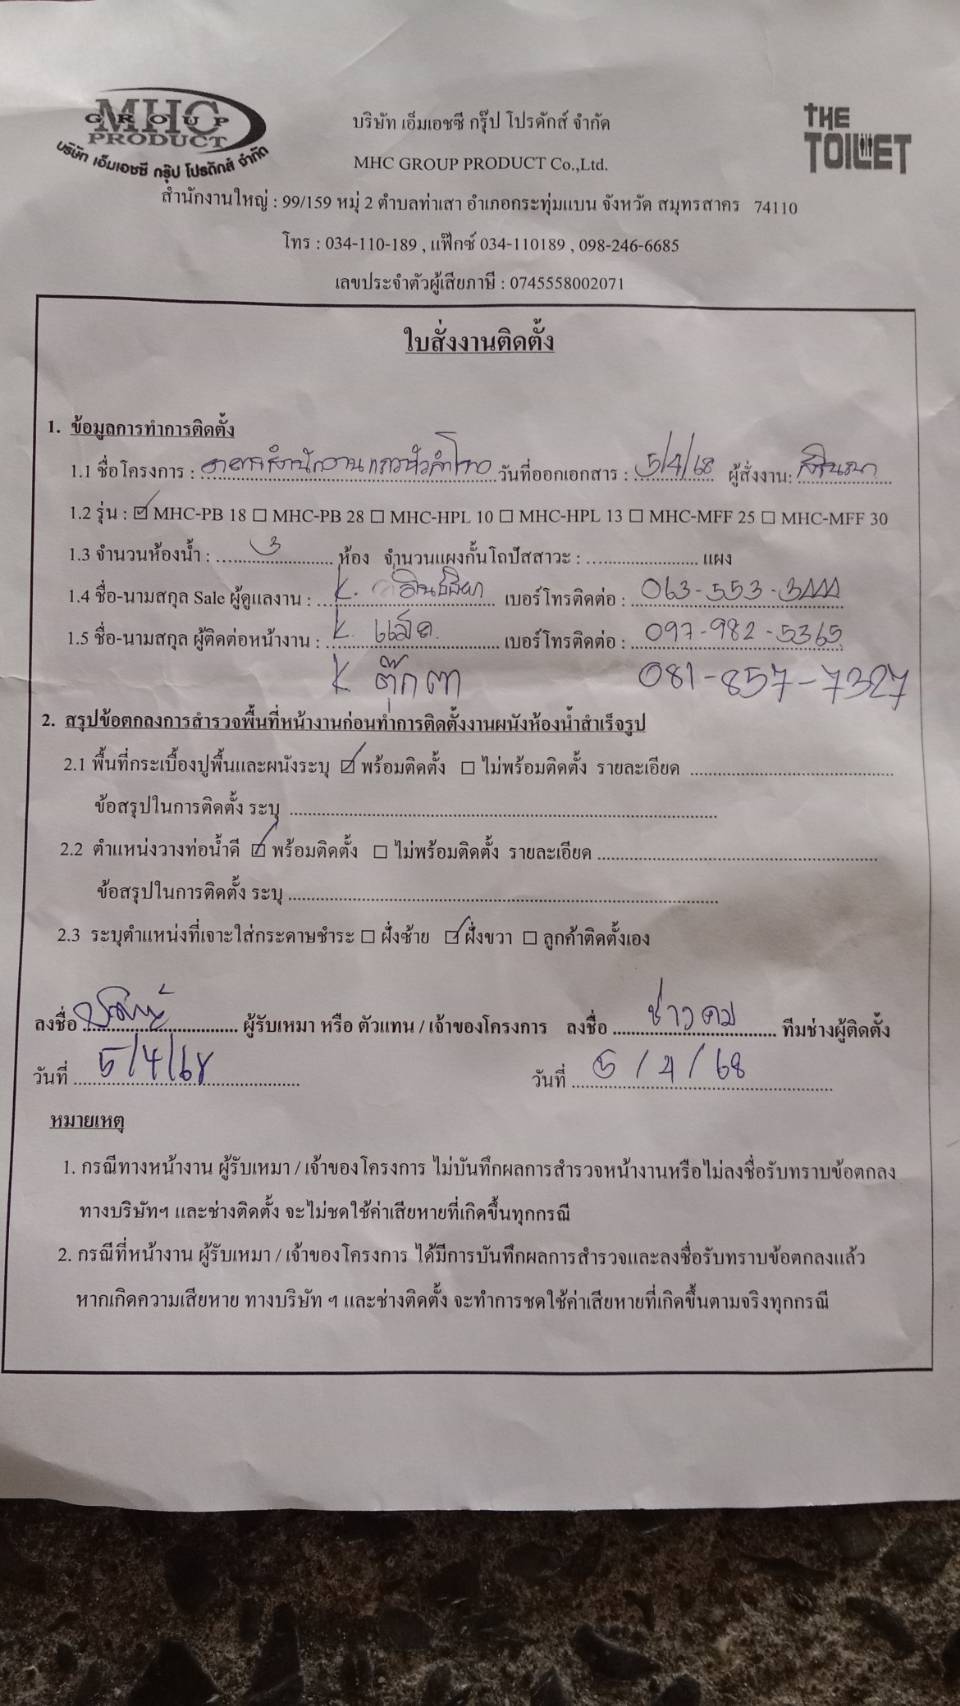 MHC
GROUP
PRODUCT
บริษัท เอ็มเอชซี กรุ๊ป โปรดักส์ จำกัด
THE
TOILET
บริษัท เอ็มเอชซี กรุ๊ป โปรดักส์ จำกัด
MHC GROUP PRODUCT Co.,Ltd.
สำนักงานใหญ่ : 99/159 หมู่ 2 ตำบลท่าเสา อำเภอกระทุ่มแบน จังหวัด สมุทรสาคร 74110
โทร : 034-110-189 , แฟ๊กซ์ 034-110189 , 098-246-6685
เลขประจำตัวผู้เสียภาษี : 0745558002071
ใบสั่งงานติดตั้ง
1. ข้อมูลการทำการติดตั้ง
1.1 ชื่อโครงการ : อาคารสำนักงาน วันที่ออกเอกสาร : 5/4/68 ผู้สั่งงาน:
1.2 รุ่น : ☑ MHC-PB 18 ☐ MHC-PB 28 ☐ MHC-HPL 10 ☐ MHC-HPL 13 ☐ MHC-MFF 25 ☐ MHC-MFF 30
1.3 จำนวนห้องน้ำ : 3 ห้อง จำนวนแผงกั้นโถปัสสาวะ : แผง
1.4 ชื่อ-นามสกุล Sale ผู้ดูแลงาน : K. เบอร์โทรติดต่อ : 063-553-3444
1.5 ชื่อ-นามสกุล ผู้ติดต่อหน้างาน : K. เบอร์โทรติดต่อ : 097-982-5365
K ตุ๊กตา 081-857-7327
2. สรุปข้อตกลงการสำรวจพื้นที่หน้างานก่อนทำการติดตั้งงานผนังห้องน้ำสำเร็จรูป
2.1 พื้นที่กระเบื้องปูพื้นและผนังระบุ ☑ พร้อมติดตั้ง ☐ ไม่พร้อมติดตั้ง รายละเอียด
ข้อสรุปในการติดตั้ง ระบุ
2.2 ตำแหน่งวางท่อน้ำดี ☑ พร้อมติดตั้ง ☐ ไม่พร้อมติดตั้ง รายละเอียด
ข้อสรุปในการติดตั้ง ระบุ
2.3 ระบุตำแหน่งที่เจาะใส่กระดาษชำระ ☐ ฝั่งซ้าย ☑ ฝั่งขวา ☐ ลูกค้าติดตั้งเอง
ลงชื่อ ผู้รับเหมา หรือ ตัวแทน / เจ้าของโครงการ ลงชื่อ ช่างคม ทีมช่างผู้ติดตั้ง
วันที่ 5/4/68 วันที่ 5 / 4 / 68
หมายเหตุ
1. กรณีทางหน้างาน ผู้รับเหมา / เจ้าของโครงการ ไม่บันทึกผลการสำรวจหน้างานหรือไม่ลงชื่อรับทราบข้อตกลง
ทางบริษัทฯ และช่างติดตั้ง จะไม่ชดใช้ค่าเสียหายที่เกิดขึ้นทุกกรณี
2. กรณีที่หน้างาน ผู้รับเหมา / เจ้าของโครงการ ได้มีการบันทึกผลการสำรวจและลงชื่อรับทราบข้อตกลงแล้ว
หากเกิดความเสียหาย ทางบริษัท ฯ และช่างติดตั้ง จะทำการชดใช้ค่าเสียหายที่เกิดขึ้นตามจริงทุกกรณี